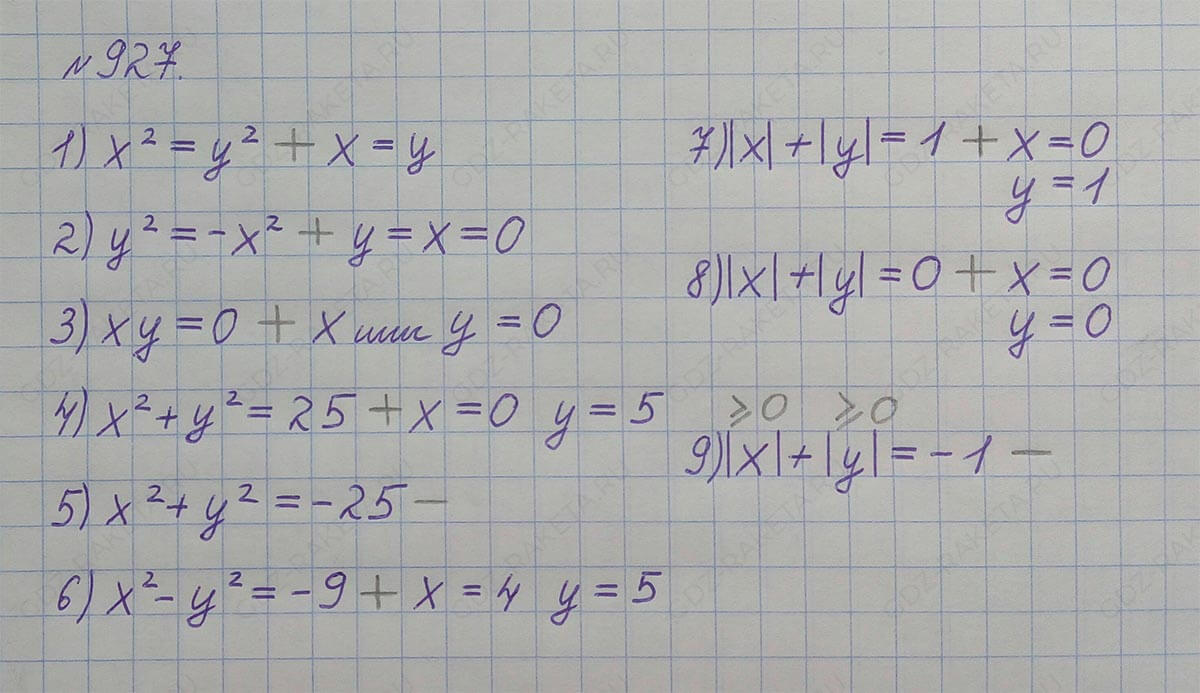 №927.
1) x² = y² + x = y
2) y² = -x² + y = x = 0
3) xy = 0 + x или y = 0
4) x² + y² = 25 + x = 0 y = 5
5) x² + y² = -25 −
6) x² - y² = -9 + x = 4 y = 5
7) |x| + |y| = 1 + x = 0
y = 1
8) |x| + |y| = 0 + x = 0
y = 0
⩾0 ⩾0
9) |x| + |y| = -1 −
GDZ-RAKETA.RU